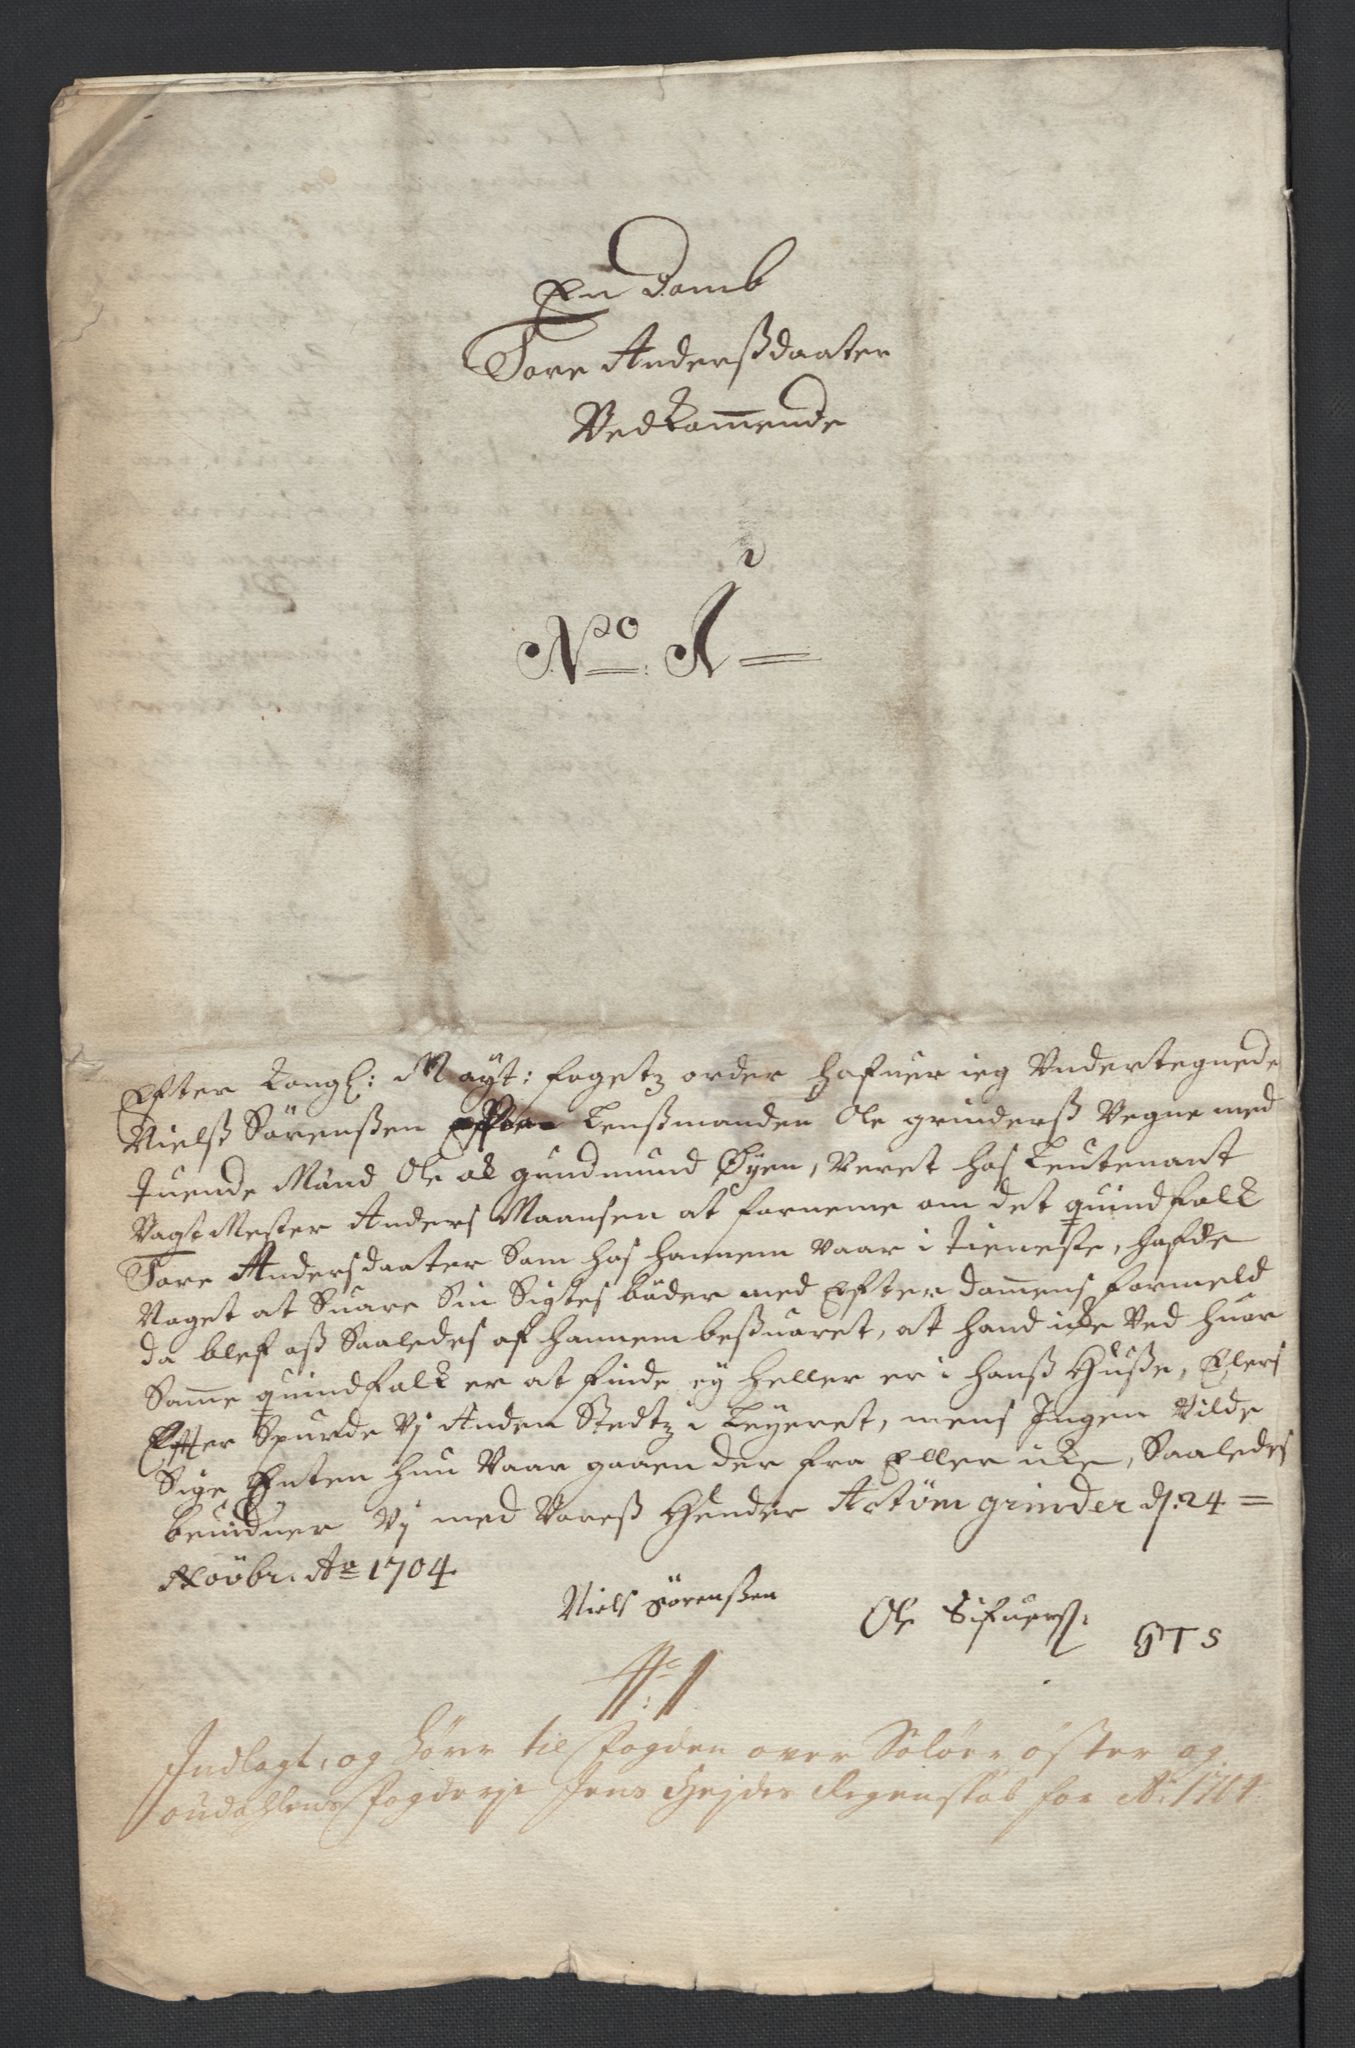 En Domb
Tore Anderßdaater
Vedkom̄ende
No. 1
Efter Kongl: Mayt: fogetz order hafuer ieg Vndertegnede
Nielß Sörenßen Lenßmanden Ole grinderß Vegne med
tuende Mānd Ole ok gundmund Øyen, Veret hos Leutenant
Vagt Mester Anders Maansen at forneme om det quindfolk
Tore Andersdaater Som hos hannem Vaar i tieneste, hafde
Noget at Suare Sin Sigtes bøder med Efter Dom̄ens formeld
da blef oß Saaledes af hannem beßuaret, at hand icke Ved huor
Sam̄e quindfolk er at finde ey heller er i hanß Huße, Elers
Effter Spurde Vj Anden Stedtz i Leyeret, mens Ingen Vilde
Sige Enten hun Vaar gaaen der fra Eller icke, Saaledes
beuidner Vj med Voreß Hender grinder d: 24 =
Novbr: Ao 1704
Niels Sörenßen Ole Sifuerß: GTS
No: 1
Indlagt, og hörer til Fogden over Solöer, öster og
oudahlens Fogderje Jens Regenskab for Ao: 1704